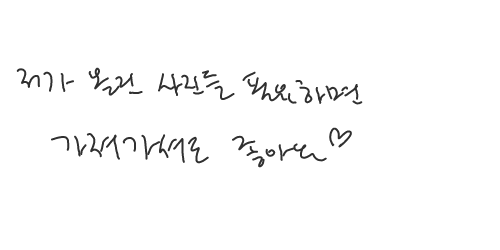 제가 올린 사진들 필요하면
가져가셔도 좋아요♡